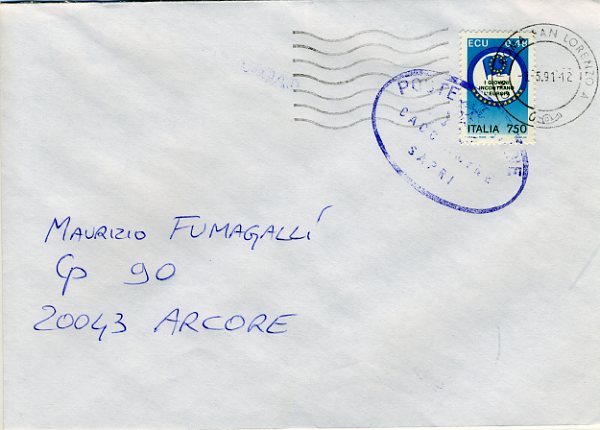 ECU 0,48
I GIOVANI
INCONTRANO
L'EUROPA
ITALIA 750
SAN LORENZO A
5.91-12
POSTE
SAPRI
MAURIZIO FUMAGALLI
CP 90
20043 ARCORE